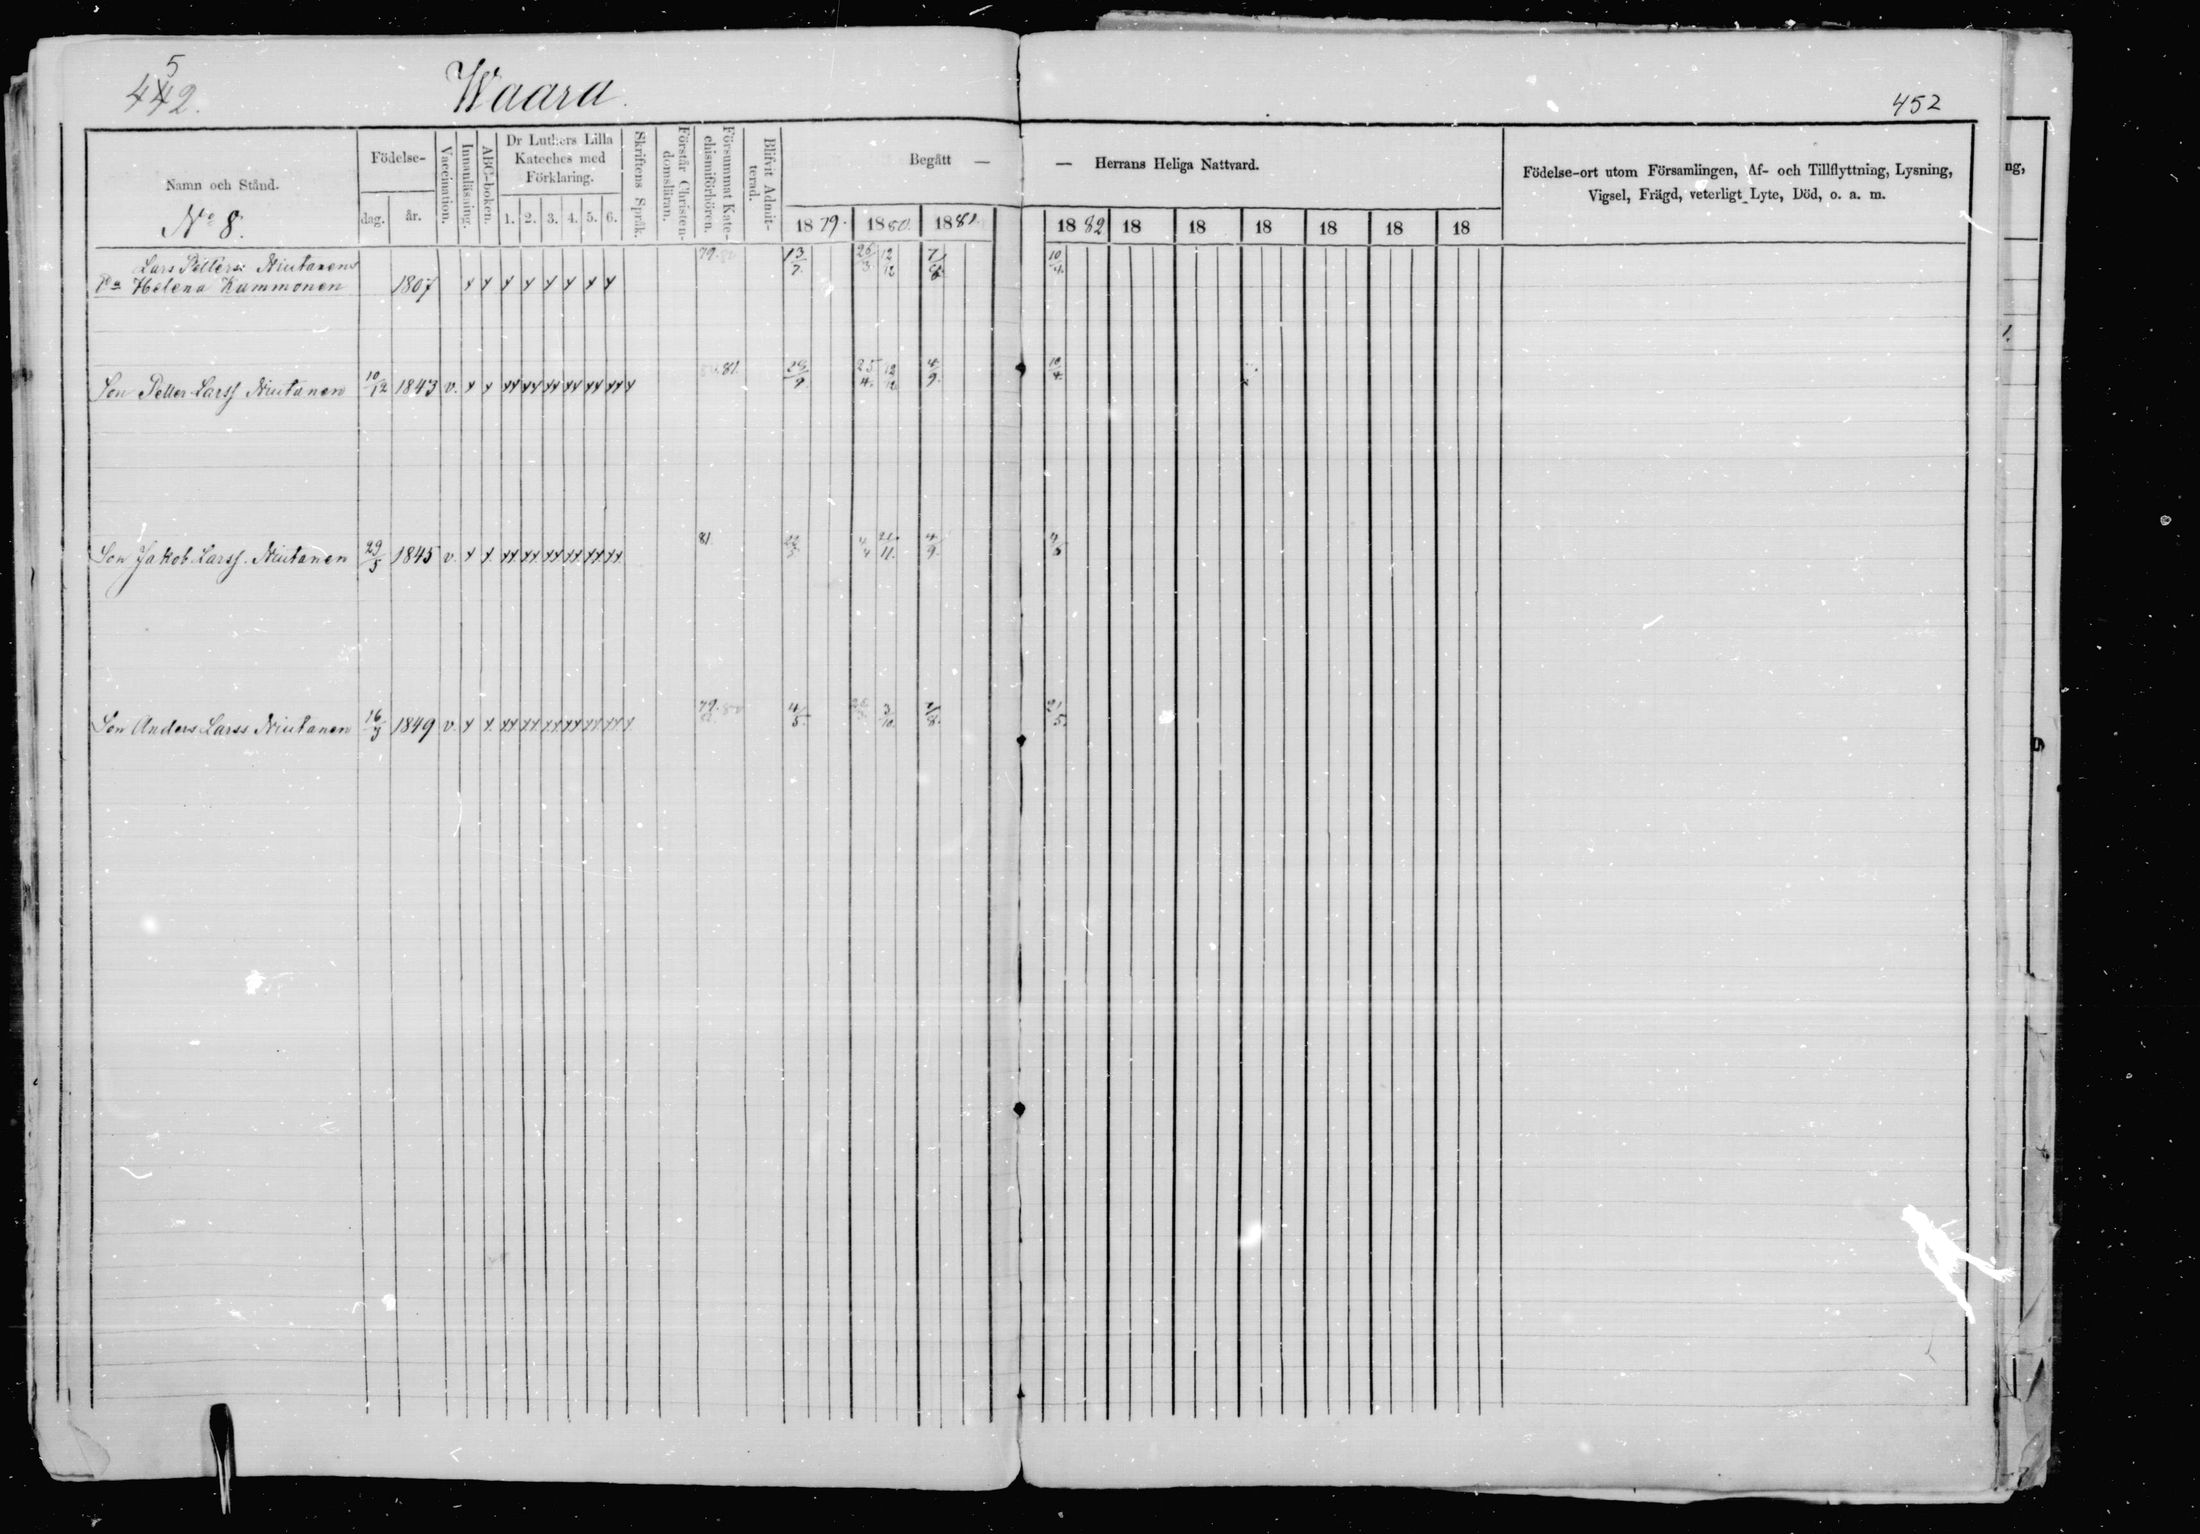 442. 5
Waara.
452
Namn och Stånd.
No 8.
Födelse-
dag. år.
Vaccination.
Innanläsning.
ABC-boken.
Dr Luthers Lilla
Kateches med
Förklaring.
1. 2. 3. 4. 5. 6.
Skriftens Språk.
Förstår Christen-
domsläran.
Försummat Kate-
chismiförhören.
Blifvit Admit-
terad.
Begått —
— Herrans Heliga Nattvard.
1879. 1880. 1881. 1882 18 18 18 18 18 18
Födelse-ort utom Församlingen, Af- och Tillflyttning, Lysning,
Vigsel, Frägd, veterligt Lyte, Död, o. a. m.
ng,
Lars Petters: Niutanens 79. 13/7. 26/3 12/12 7/8 10/4.
Helena Kammonen 1807 x x x x x x x x
81. 25/4. 12/12 4/9. 10/4.
Son Petter Larss Niutanen 10/12 1843 v. x x xx xx xx xx xx xx x
81. 4/4 21/11. 4/9.
Son Jakob Larss. Niutanen 29/5 1845 v. x x xx xx xx xx xx xx
79. 80 4/5. 3/10. 7/8. 21/5.
Son Anders Larss Niutanen 16/5 1849 v. x x xx xx xx xx xx xx x